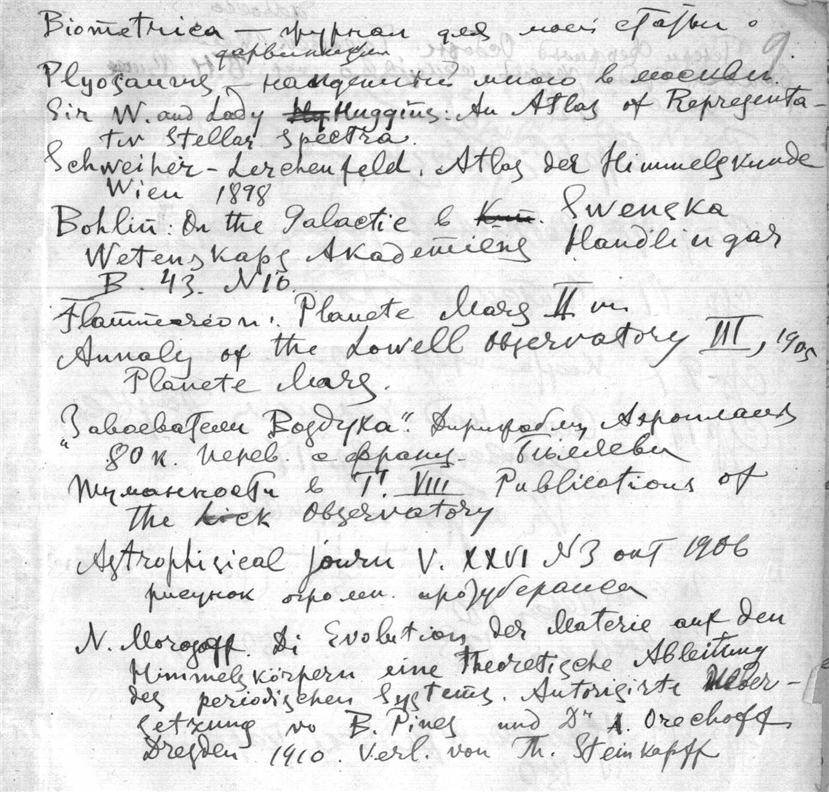 Biometrica — журнал для моей статьи о
дарвинизм
Plyosaurus — найденный много в Москви.
Sir W. and Lady Huggins: An Atlas of Representa-
tiv Stellar Spectra.
Schweiher-Lerchenfeld. Atlas der Himmelskunde
Wien 1898
Bohlin: On the Galactic в Swenska
Wetenskaps Akademiens Handlingar
B. 43. N10.
Flammarion. Planete Mars II
Annals of the Lowell Observatory III, 1905
Planete Mars.
"Завоеватели Воздуха". Аэроплан
80 к. перев. с франц.
Туманности в Т. VIII Publications of
the Lick Observatory
Astrophisical journ V. XXVI N3 окт 1906
рисунок огромн. протуберанса
N. Morosoff. Di Evolution der Materie auf den
Himmelskörpern eine theoretische Ableitung
des periodischen Systems. Autorisirte Ueber-
setzung vo B. Pines und Dr A. Orechoff
Dresden 1910. Verl. von Th. Steinkopff